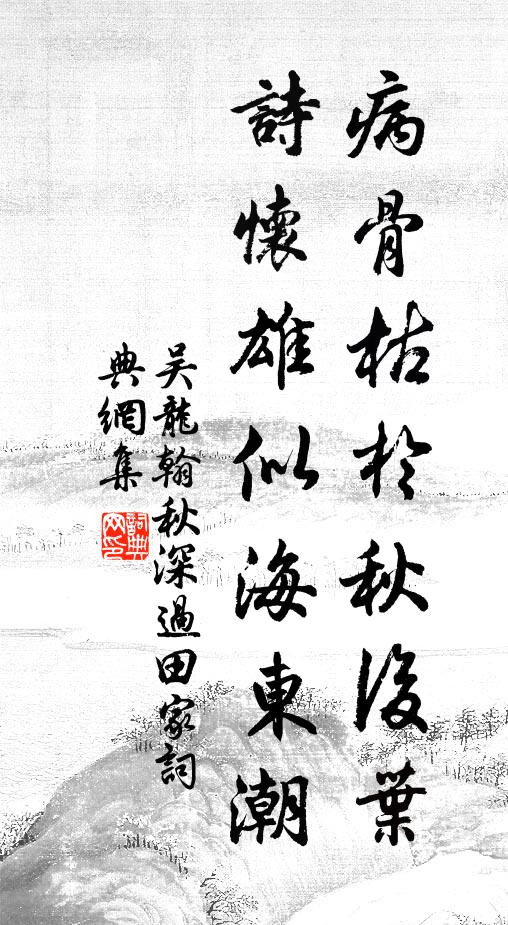 病骨枯於秋後葉
詩懷雄似海東潮
吴龍翰秋深過田家詞
典網集
詞典
网印